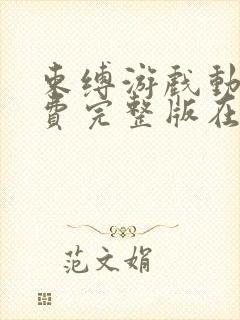 束缚游戏动
费完整版在
范文娟